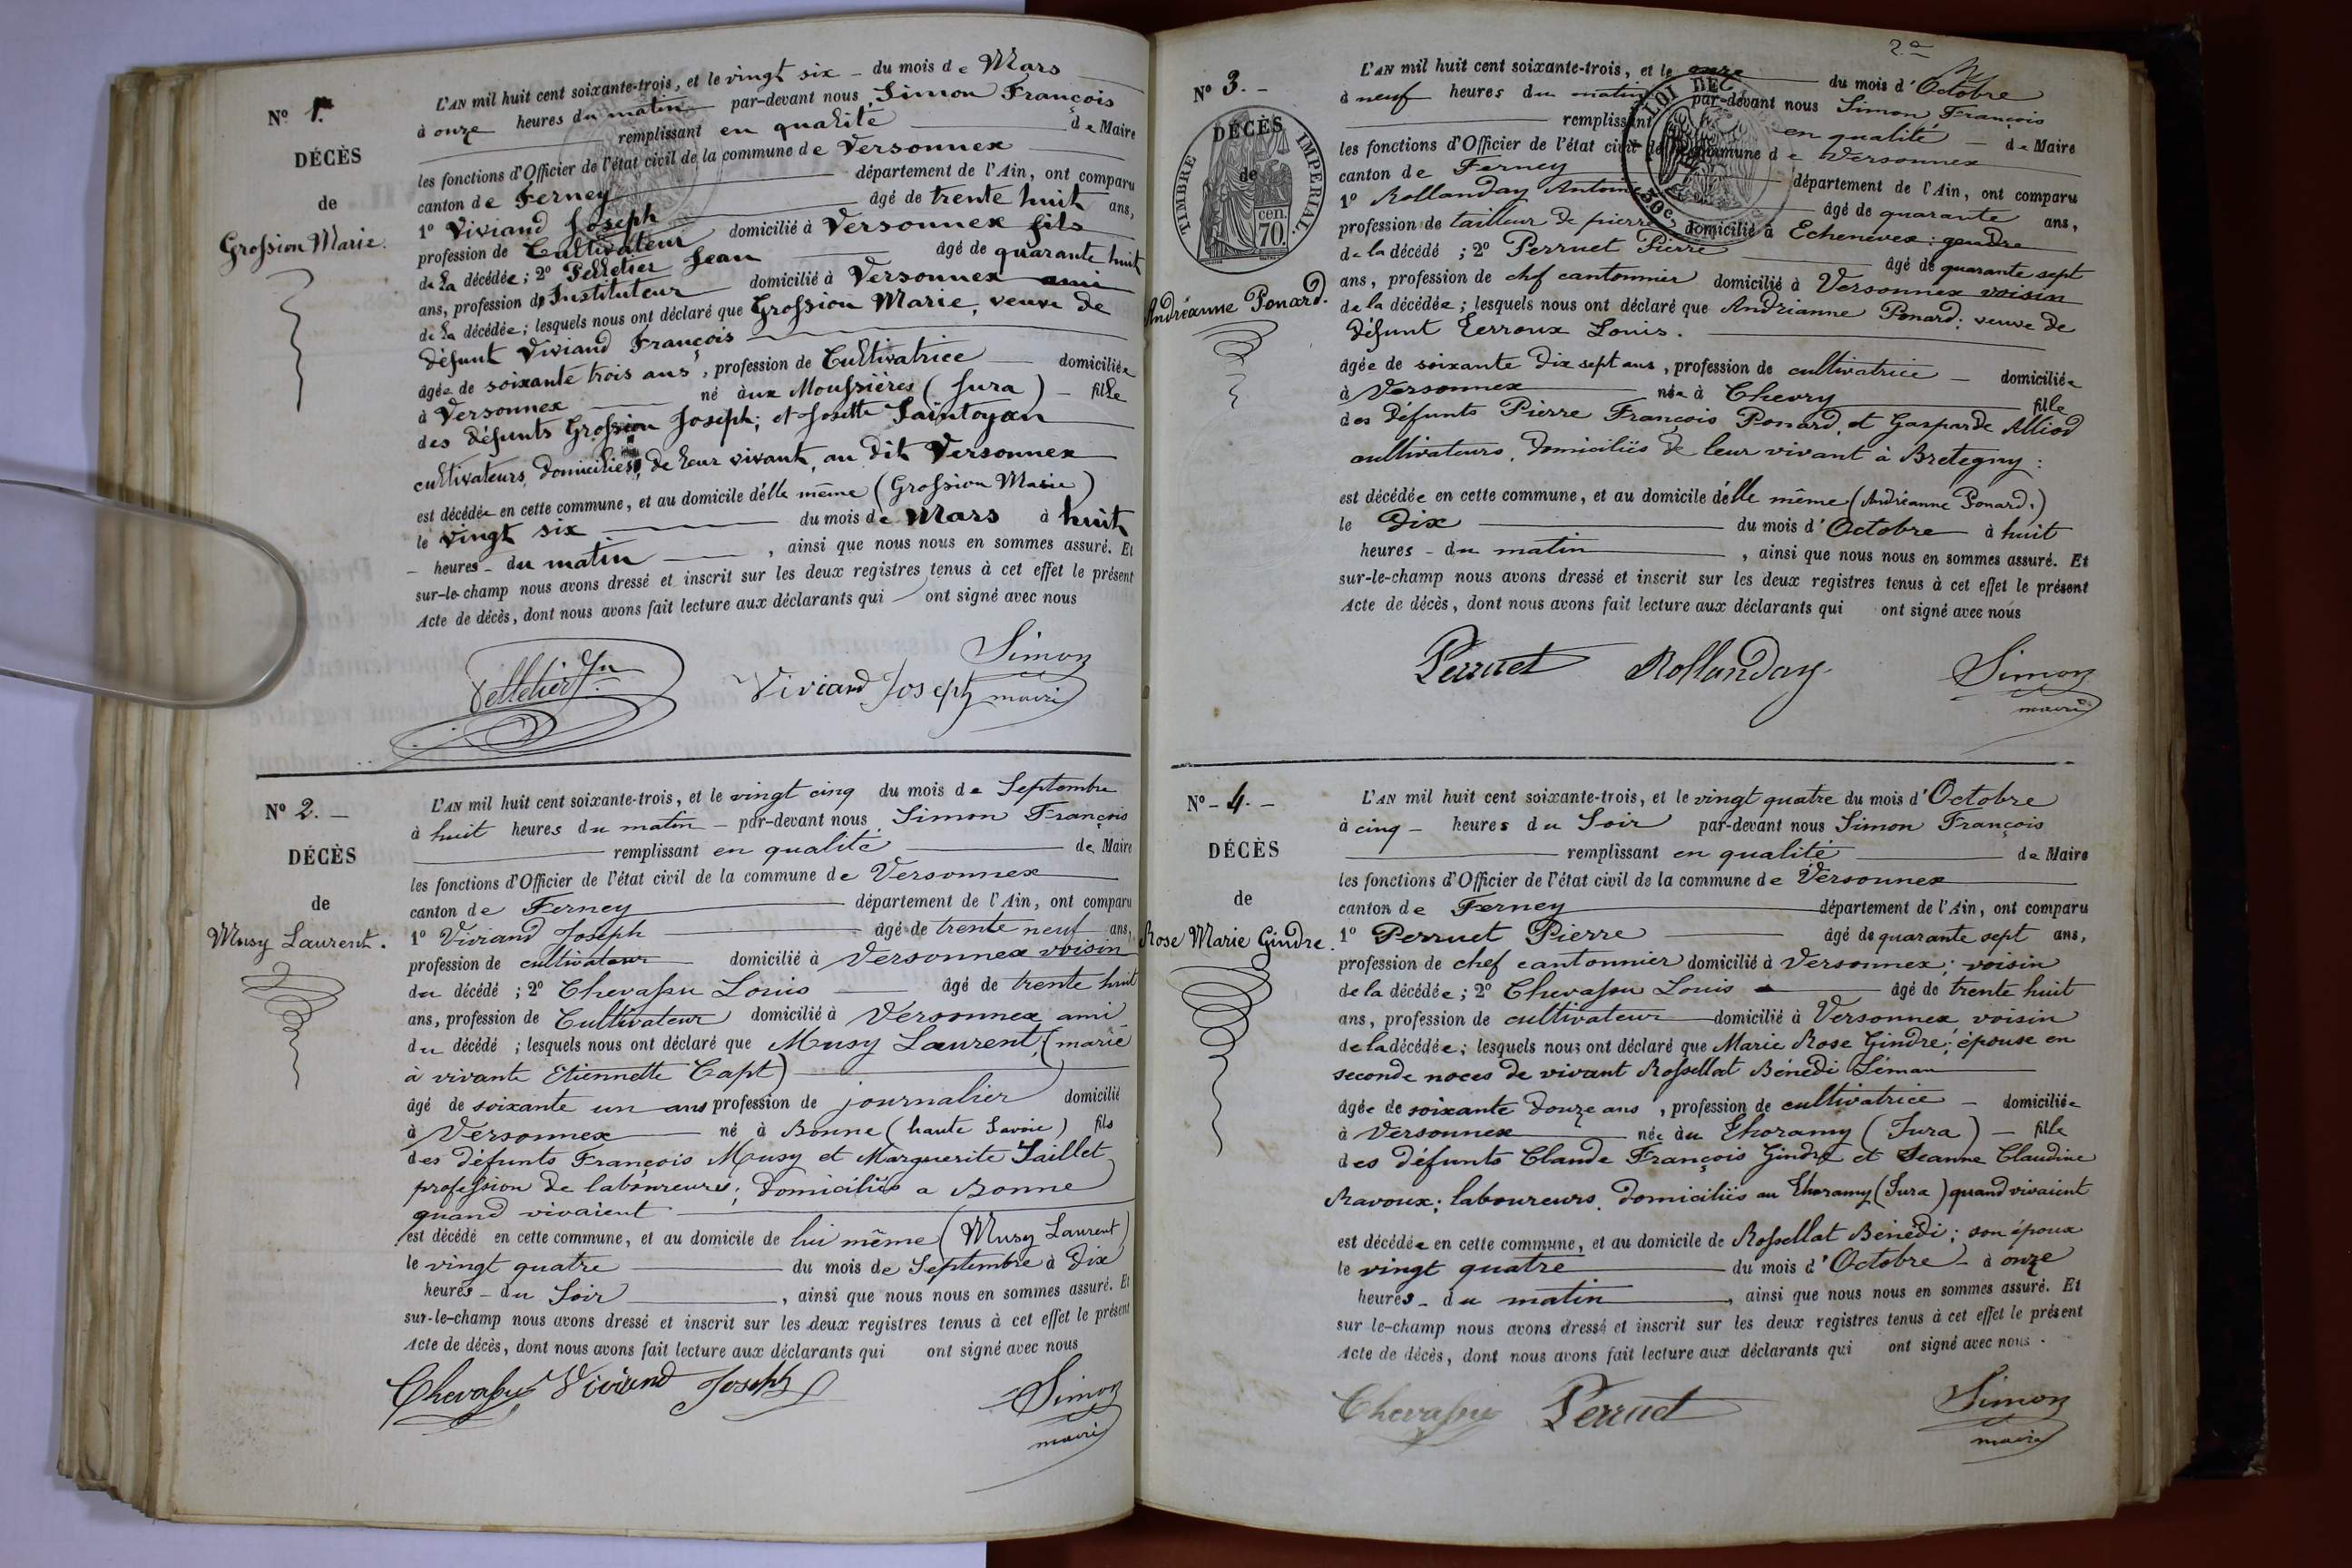 N° 1er
DÉCÈS
de
Grossion Marie.
L'AN mil huit cent soixante-trois, et le vingt six du mois de Mars
à onze heures du matin par-devant nous Simon François
remplissant en qualité de Maire
les fonctions d'Officier de l'état civil de la commune de Versonnex
canton de Ferney département de l'Ain, ont comparu
1° Viviand Joseph âgé de trente huit ans,
profession de Cultivateur domicilié à Versonnex fils
de la décédée; 2° Pelletier Jean âgé de quarante huit
ans, profession de Instituteur domicilié à Versonnex ami
de la décédée; lesquels nous ont déclaré que Grossion Marie, veuve de
défunt Viviand François
âgée de soixante trois ans, profession de Cultivatrice domiciliée
à Versonnex né aux Moussières (Jura) fille
des défunts Grossion Joseph; et Josette Saintoyan
cultivateurs, domiciliés, de leur vivant, au dit Versonnex
est décédée en cette commune, et au domicile d'elle même (Grossion Marie)
le vingt six du mois de Mars à huit
heures du matin, ainsi que nous nous en sommes assuré. Et
sur-le-champ nous avons dressé et inscrit sur les deux registres tenus à cet effet le présent
Acte de décès, dont nous avons fait lecture aux déclarants qui ont signé avec nous
Pelletier Jn Viviand Joseph Simon
maire
N° 2.
DÉCÈS
de
Musy Laurent.
L'AN mil huit cent soixante-trois, et le vingt cinq du mois de Septembre
à huit heures du matin par-devant nous Simon François
remplissant en qualité de Maire
les fonctions d'Officier de l'état civil de la commune de Versonnex
canton de Ferney département de l'Ain, ont comparu
1° Viviand Joseph âgé de trente neuf ans,
profession de cultivateur domicilié à Versonnex voisin
du décédé; 2° Chevassu Louis âgé de trente huit
ans, profession de Cultivateur domicilié à Versonnex ami
du décédé; lesquels nous ont déclaré que Musy Laurent, (marié
à vivante Etiennette Capt)
âgé de soixante un ans profession de journalier domicilié
à Versonnex né à Bonne (haute Savoie) fils
des défunts François Musy et Marguerite Saillet
profession de laboureurs; domiciliés a Bonne
quand vivaient
est décédé en cette commune, et au domicile de lui même (Musy Laurent)
le vingt quatre du mois de Septembre à Dix
heures du Soir, ainsi que nous nous en sommes assuré. Et
sur-le-champ nous avons dressé et inscrit sur les deux registres tenus à cet effet le présent
Acte de décès, dont nous avons fait lecture aux déclarants qui ont signé avec nous
Chevassu Viviand Joseph Simon
maire
2e
N° 3.
TIMBRE IMPÉRIAL
DÉCÈS
de
70 cen.
Andréanne Ponard.
LOI DE
30c
L'AN mil huit cent soixante-trois, et le onze du mois d'Octobre
à neuf heures du matin par-devant nous Simon François
remplissant en qualité de Maire
les fonctions d'Officier de l'état civil de la commune de Versonnex
canton de Ferney département de l'Ain, ont comparu
1° Rollanday Antoine âgé de quarante ans,
profession de tailleur de pierre domicilié à Echenevex: gendre
de la décédé; 2° Perruet Pierre âgé de quarante sept
ans, profession de chef cantonnier domicilié à Versonnex voisin
de la décédée; lesquels nous ont déclaré que Andrianne Ponard: veuve de
défunt Lerroux Louis.
âgée de soixante Dix sept ans, profession de cultivatrice domiciliée
à Versonnex née à Chevry fille
des défunts Pierre François Ponard, et Gasparde Alliod
cultivateurs, domiciliés de leur vivant à Bretegny:
est décédée en cette commune, et au domicile d'elle même (Andréanne Ponard.)
le Dix du mois d'Octobre à huit
heures du matin, ainsi que nous nous en sommes assuré. Et
sur-le-champ nous avons dressé et inscrit sur les deux registres tenus à cet effet le présent
Acte de décès, dont nous avons fait lecture aux déclarants qui ont signé avec nous
Perruet Rollanday Simon
maire
N° 4.
DÉCÈS
de
Rose Marie Gindre
L'AN mil huit cent soixante-trois, et le vingt quatre du mois d'Octobre
à cinq heures du Soir par-devant nous Simon François
remplissant en qualité de Maire
les fonctions d'Officier de l'état civil de la commune de Versonnex
canton de Ferney département de l'Ain, ont comparu
1° Perruet Pierre âgé de quarante sept ans,
profession de chef cantonnier domicilié à Versonnex; voisin
de la décédée; 2° Chevassu Louis âgé de trente huit
ans, profession de cultivateur domicilié à Versonnex voisin
de la décédée; lesquels nous ont déclaré que Marie Rose Gindre; épouse en
seconde noces de vivant Rossellat Bénédi Léman
âgée de soixante Douze ans, profession de cultivatrice domiciliée
à Versonnex née au Lhoramy (Jura) fille
des défunts Claude François Gindre et Jeanne Claudine
Ravoux; laboureurs, domiciliés au Lhoramy (Jura) quand vivaient
est décédée en cette commune, et au domicile de Rossellat Bénédi; son époux
le vingt quatre du mois d'Octobre à onze
heures du matin, ainsi que nous nous en sommes assuré. Et
sur-le-champ nous avons dressé et inscrit sur les deux registres tenus à cet effet le présent
Acte de décès, dont nous avons fait lecture aux déclarants qui ont signé avec nous.
Chevassu Perruet Simon
maire